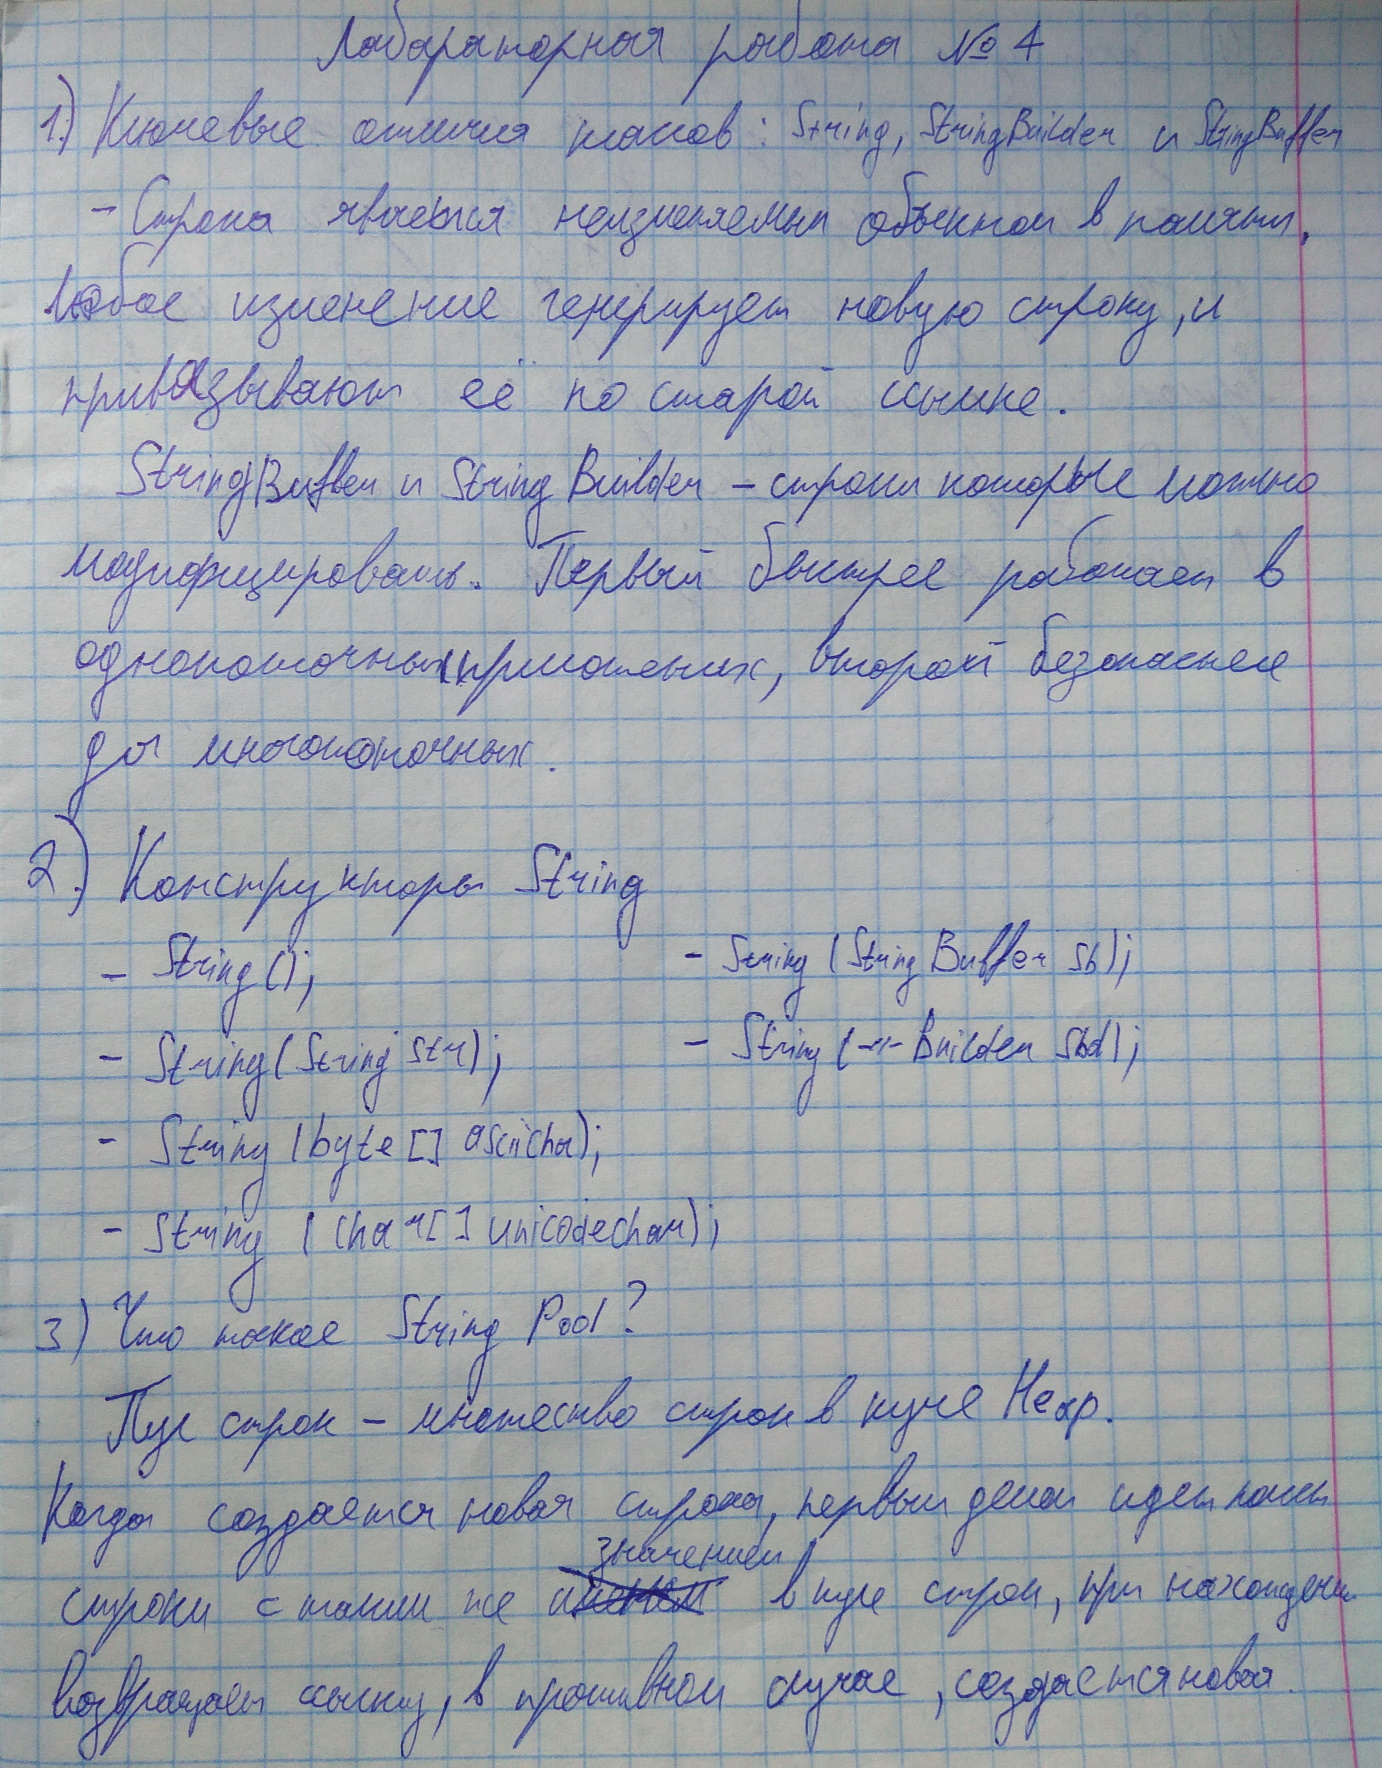 Лабараторная работа № 4
1.) Ключевые отличия класов: String, StringBuilder и StringBuffer
- Строка является неизменяемым объектом в памяти.
Любое изменение генерирует новую строку, и
привязывают её по старой ссылке.
StringBuffer и StringBuilder - строки которые можно
модифицировать. Первый быстрее работает в
однопоточных приложениях, второй безопаснее
для многопоточных.
2.) Конструкторы String
- String(); - String (StringBuffer sb);
- String(String str); - String (-"-Builder sbd);
- String (byte[] asciichar);
- String (char[] unicodechar);
3) Что такое String Pool?
Пул строк - множество строк в куче Heap.
Когда создается новая строка, первым делом идет поиск
значением
строки с таким же именем в пуле строк, при нахождении
возвращает ссылку, в противном случае, создается новая.